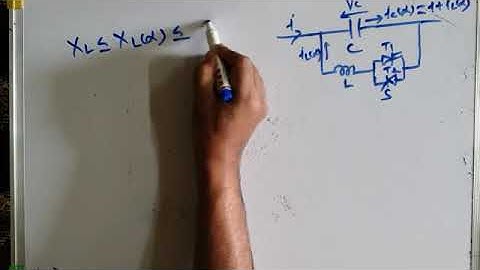 X_L ≤ X_L(α) ≤
V_C
i
i_C(α) = i + i_L(α)
i_L(α)
C
T_1
T_2
L
S